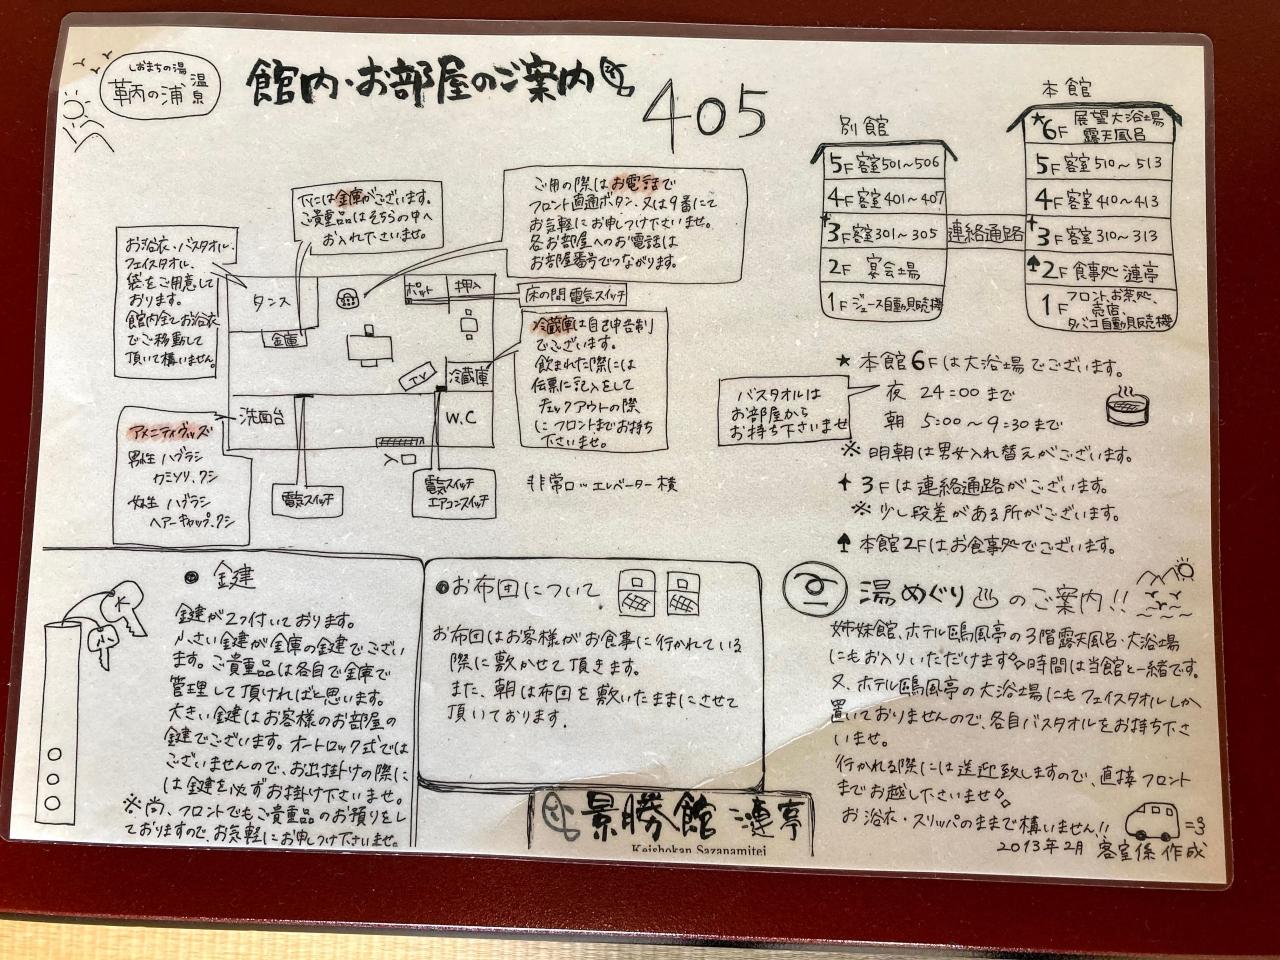 しおまちの湯
鞆の浦温泉
館内・お部屋のご案内
405
別館
5F 客室501〜506
4F 客室401〜407
3F 客室301〜305
2F 宴会場
1F ジュース自動販売機
連絡通路
本館
★6F 展望大浴場
露天風呂
5F 客室510〜513
4F 客室410〜413
3F 客室310〜313
2F 食事処 漣亭
1F フロント、お茶処、
売店、
タバコ自動販売機
下には金庫がございます。
ご貴重品はそちらの中へ
お入れ下さいませ。
ご用の際はお電話で
フロント直通ボタン、又は9番にて
お気軽にお申しつけ下さいませ。
各お部屋へのお電話は
お部屋番号でつながります。
お浴衣・バスタオル、
フェイスタオル、
袋をご用意して
おります。
館内全てお浴衣
でご移動して
頂いて構いません。
タンス
金庫
ポット
押入
床の間電気スイッチ
TV
冷蔵庫
洗面台
W.C
入口
電気スイッチ
電気スイッチ
エアコンスイッチ
冷蔵庫は自己申告制
でございます。
飲まれた際には
伝票に記入をして
チェックアウトの際
にフロントまでお持ち
下さいませ。
アメニティグッズ
男性 ハブラシ
カミソリ、クシ
女性 ハブラシ
ヘアーキャップ、クシ
非常口…エレベーター横
★ 本館6Fは大浴場でございます。
夜 24:00まで
朝 5:00〜9:30まで
バスタオルは
お部屋から
お持ち下さいませ
※ 明朝は男女入れ替えがございます。
3Fは連絡通路がございます。
※ 少し段差がある所がございます。
本館2Fはお食事処でございます。
鍵
鍵が2つ付いております。
小さい鍵が金庫の鍵でござい
ます。ご貴重品は各自で金庫で
管理して頂ければと思います。
大きい鍵はお客様のお部屋の
鍵でございます。オートロック式では
ございませんので、お出掛けの際に
は鍵を必ずお掛け下さいませ。
※尚、フロントでもご貴重品のお預りをし
ておりますので、お気軽にお申しつけ下さいませ。
お布団について
お布団はお客様がお食事に行かれている
際に敷かせて頂きます。
また、朝は布団を敷いたままにさせて
頂いております。
湯めぐり♨のご案内!!
姉妹館、ホテル鷗風亭の3階露天風呂・大浴場
にもお入りいただけます。時間は当館と一緒です。
又、ホテル鷗風亭の大浴場にもフェイスタオルしか
置いておりませんので、各自バスタオルをお持ち下さ
いませ。
行かれる際には送迎致しますので、直接フロント
までお越し下さいませ。
お浴衣・スリッパのままで構いません!!
2013年2月 客室係 作成
景勝館 漣亭
Keishokan Sazanamitei